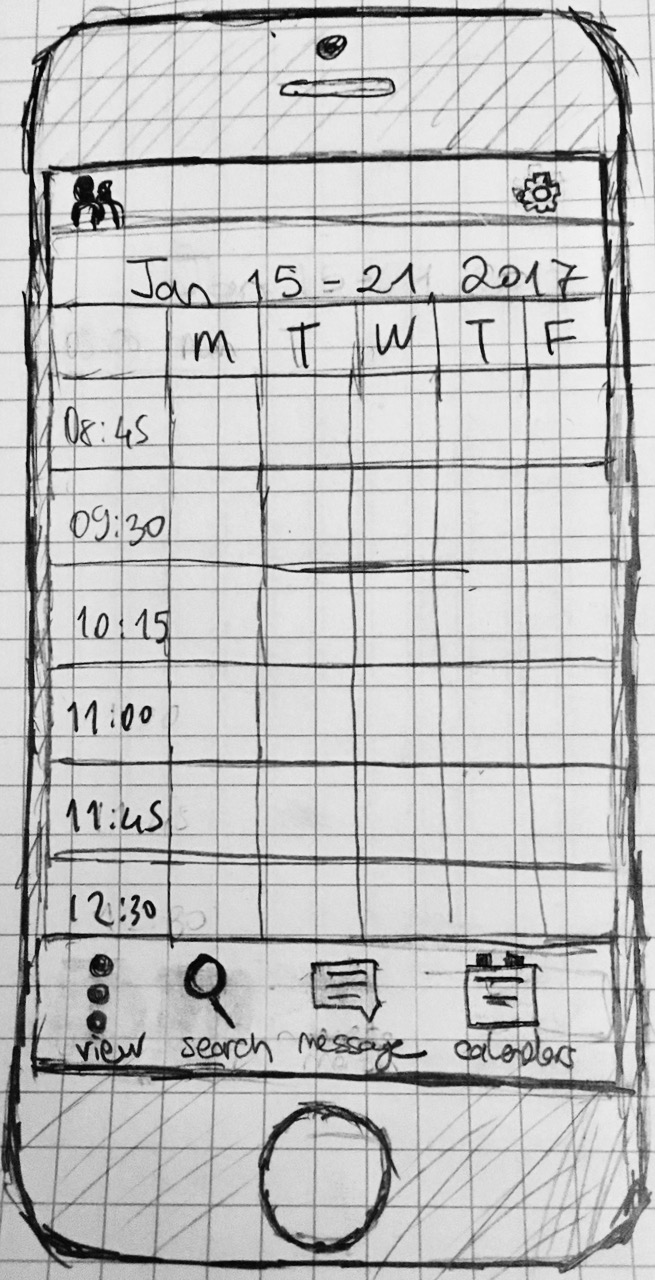 Jan 15 - 21 2017
M T W T F
08:45
09:30
10:15
11:00
11:45
12:30
view search message calendars